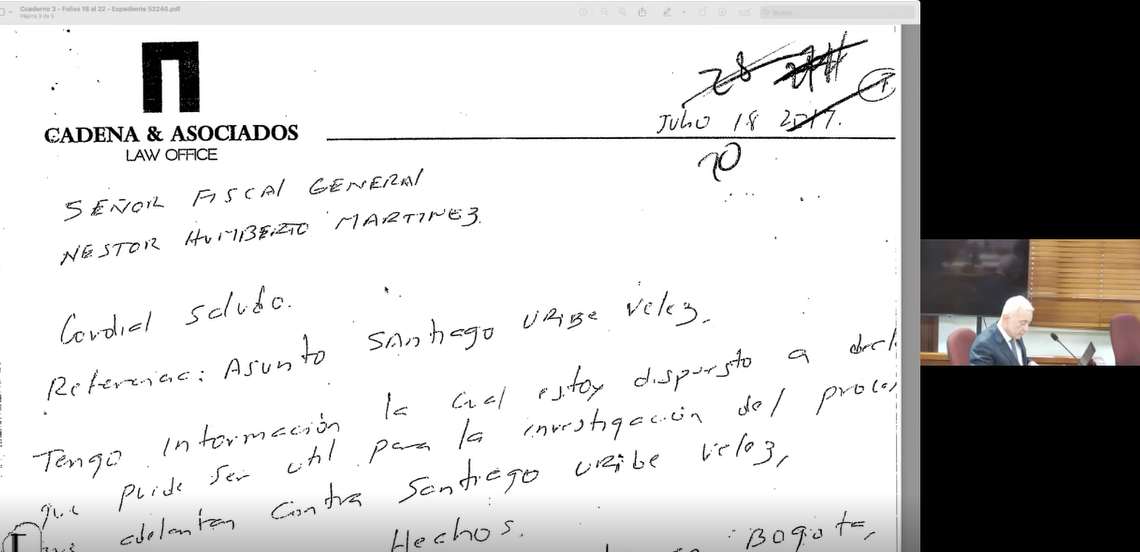 Cuaderno 3 - Folios 18 al 22 - Expediente 52240.pdf
Página 3 de 5
Buscar
28
CADENA & ASOCIADOS
LAW OFFICE
Julio 18 2017.
20
SEÑOR FISCAL GENERAL
NESTOR HUMBERTO MARTINEZ
Cordial Saludo.
Referencia: Asunto Santiago URIBE Velez.
Tengo Información la cual estoy dispuesto a decl
que puede ser util para la investigación del proces
adelantan contra Santiago URIBE Velez,
Hechos.
BOGOTA,